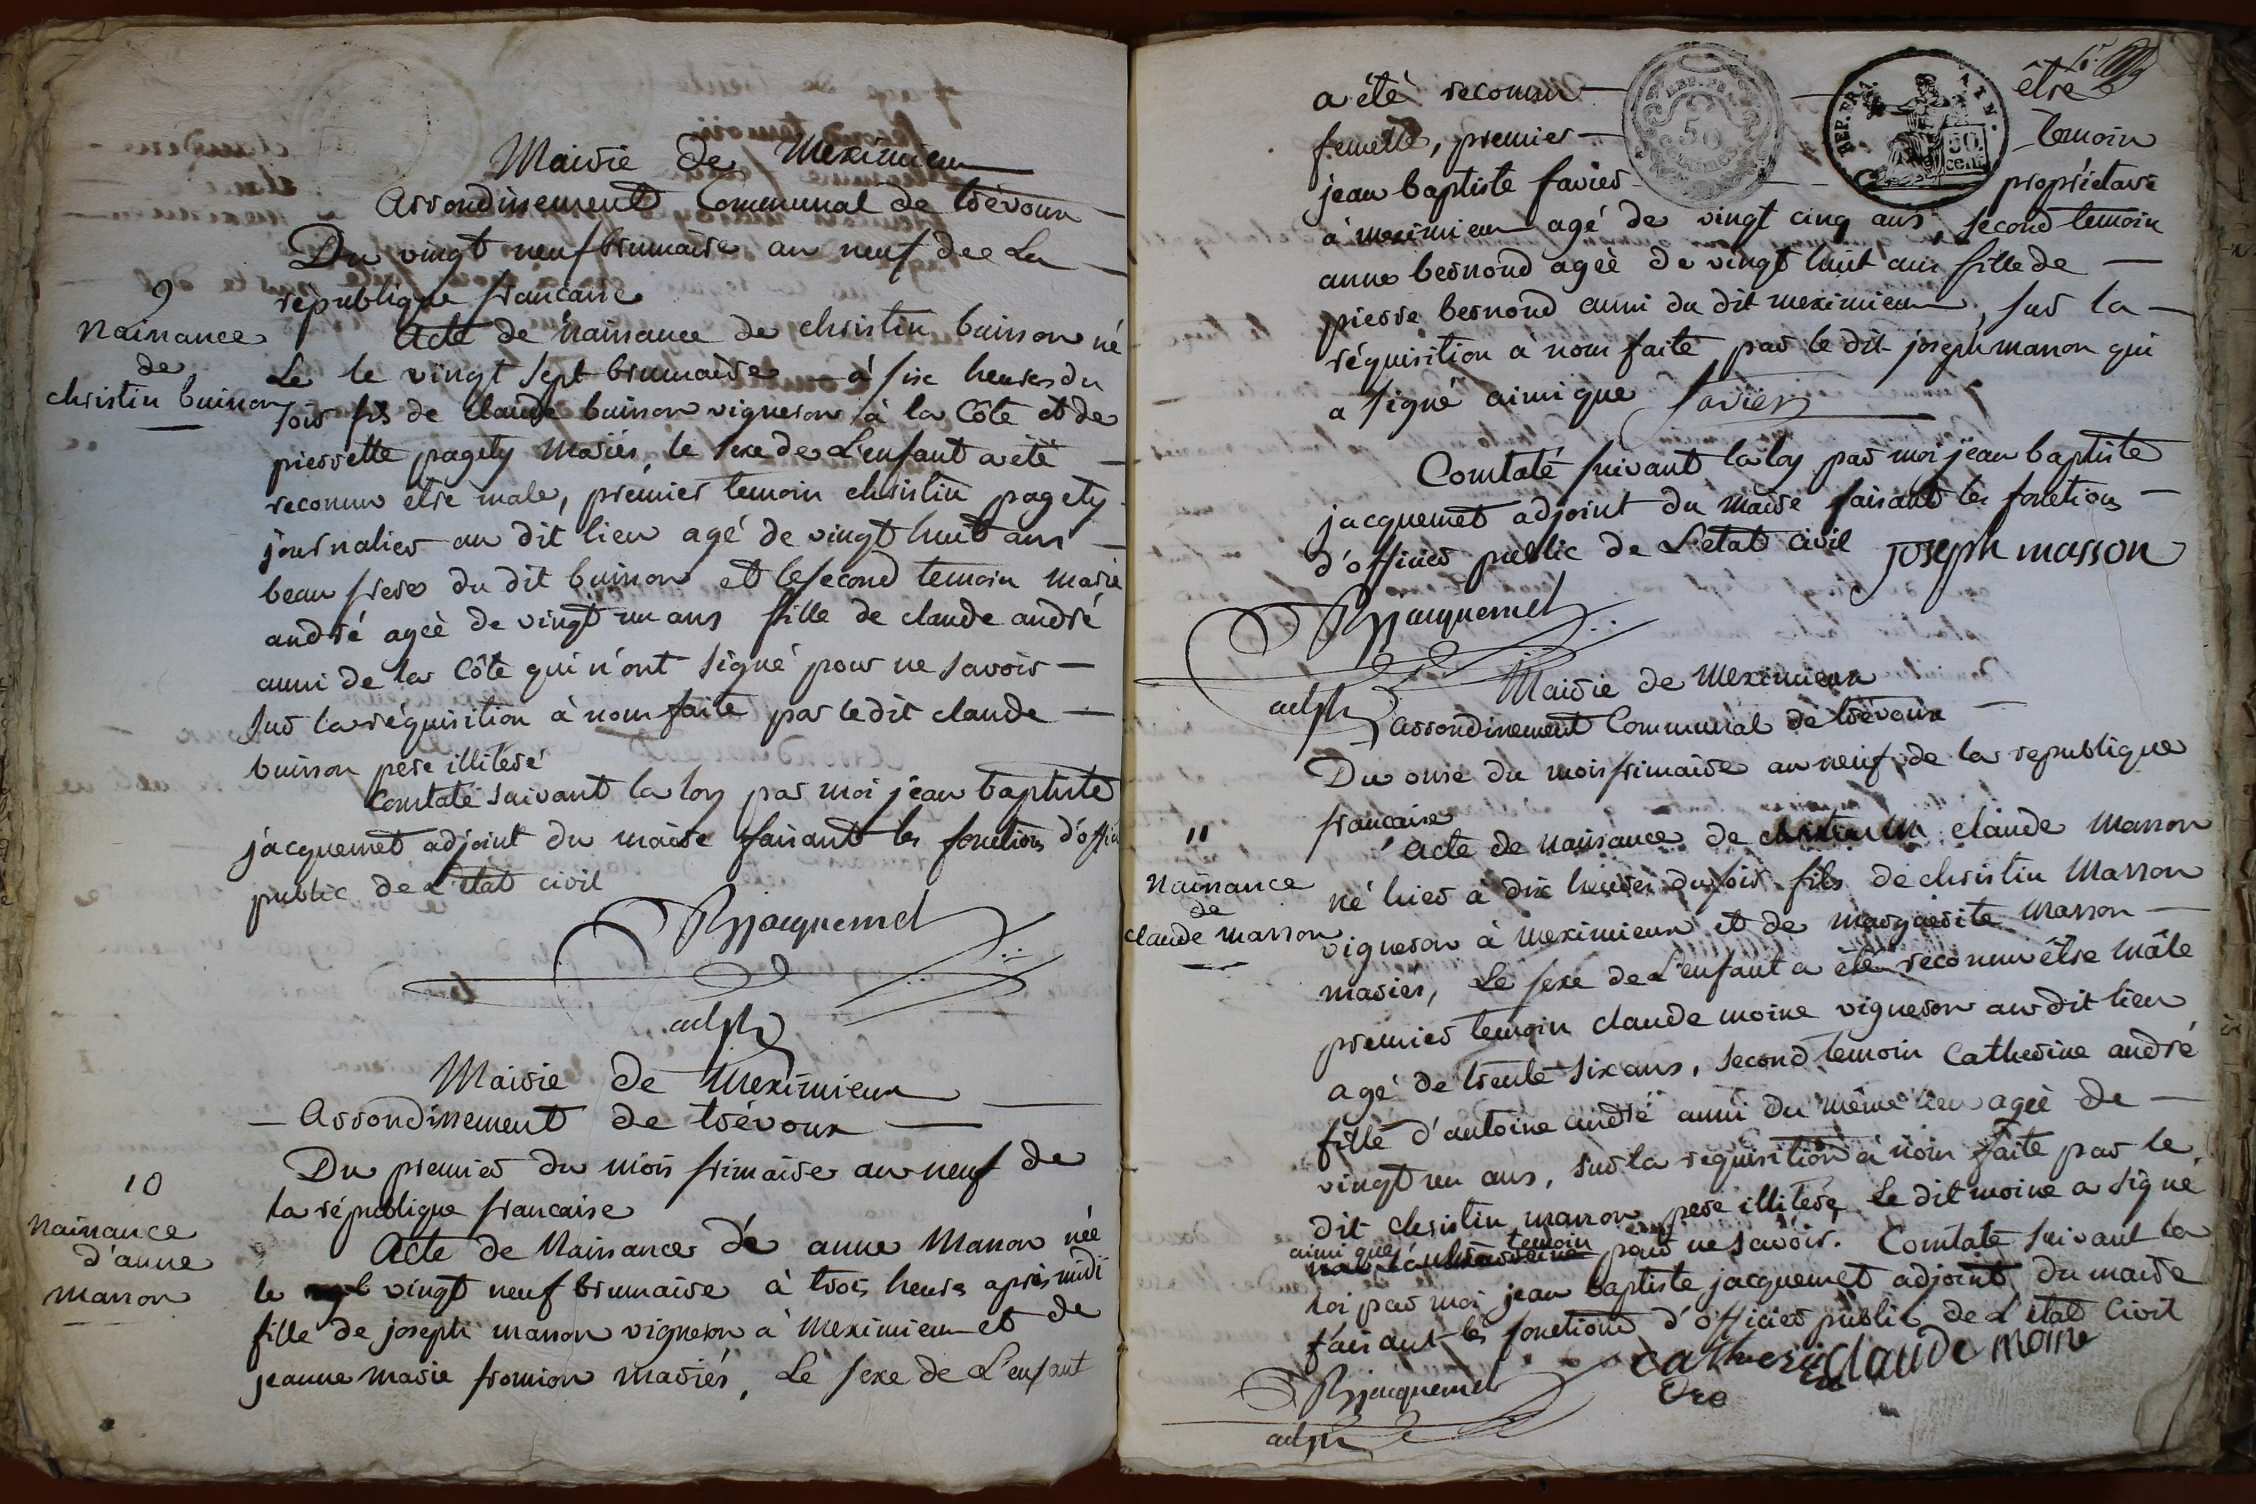 Mairie de Meximieux
arrondissement Communal de trévoux
Du vingt neuf brumaire an neuf dee La
république francaise
9
Naissance
de
christin buisson
Acte de naissance de christin buisson né
Le le vingt sept brumaire à six heures du
soir fils de claude buisson vigneron à la Côte et de
pierrette pagety mariés, le sexe de L'enfant a été
reconnu etre male, premier temoin christin pagety
journalier au dit lieu agé de vingt huit ans
beau frere du dit buisson et le second temoin marie
andré ageé de vingt un ans fille de claude andré
aussi de la Côte qui n'ont signé pour ne savoir
sur la réquisition à nous faite par le dit claude
buisson pere illiteré
Constaté suivant la loy par moi jean baptiste
jacquemet adjoint du maire faisant les fonctions d'offici
public de L'etat civil
Bjjacquemet
adjt
Mairie de Meximieux
arrondissement de trévoux
Du premier du mois frimaire an neuf de
la république francaise
10
Naissance
d'anne
Masson
Acte de Naissance de anne Masson née
le vingt neuf brumaire à trois heures après midi
fille de joseph masson vigneron à meximieux et de
jeanne marie fromion mariés, Le sexe de L'enfant
a été reconnu être
femelle, premier temoin
jean baptiste favier propriétaire
à meximieux agé de vingt cinq ans, second temoin
anne bernond ageé de vingt huit ans fille de
pierre bernond aussi du dit meximieux, sur la
réquisition à nous faite par le dit joseph masson qui
a signé ainsi que favier
REP. FRA.
50
centimes
REP. FRA. NAT.
50
cent.
Constaté suivant la loy par moi jean baptiste
jacquemet adjoint du maire faisant les fonctions
d'officier public de L'etat civil joseph masson
Bjjacquemet
adjt
Mairie de Meximieux
arrondissement Communal de trévoux
Du onse du mois frimaire an neuf de la republique
francaise
11
Naissance
de
claude masson
Acte de naissance de claude Masson
né hier à dix heures du soir fils de christin Masson
vigneron à meximieux et de marguerite Masson
mariés, Le sexe de L'enfant a été reconnu être mâle
premier temoin claude moine vigneron au dit lieu
agé de trente six ans, second temoin Catherine andré
fille d'antoine andré aussi du même lieu ageé de
vingt un ans, sur la requisition à nous faite par le
dit christin masson pere illiteré, Le dit moine a signé
ainsi que temoin pour ne savoir. Constaté suivant la
loi par moi jean baptiste jacquemet adjoint du maire
faisant les fonctions d'officier public de L'etat Civil
catherin claude moine
Bjjacquemet
adjt